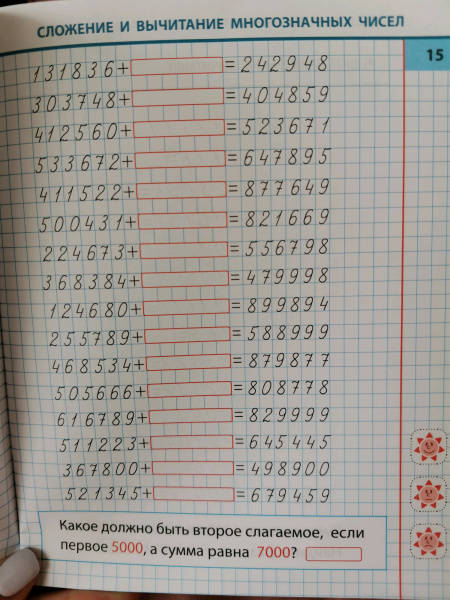 СЛОЖЕНИЕ И ВЫЧИТАНИЕ МНОГОЗНАЧНЫХ ЧИСЕЛ
15
131836+ =242948
303748+ =404859
412560+ =523671
533672+ =647895
411522+ =877649
500431+ =821669
224673+ =556798
368384+ =479998
124680+ =899894
255789+ =588999
468534+ =879877
505666+ =808778
616789+ =829999
511223+ =645445
367800+ =498900
521345+ =679459
Какое должно быть второе слагаемое, если
первое 5000, а сумма равна 7000?